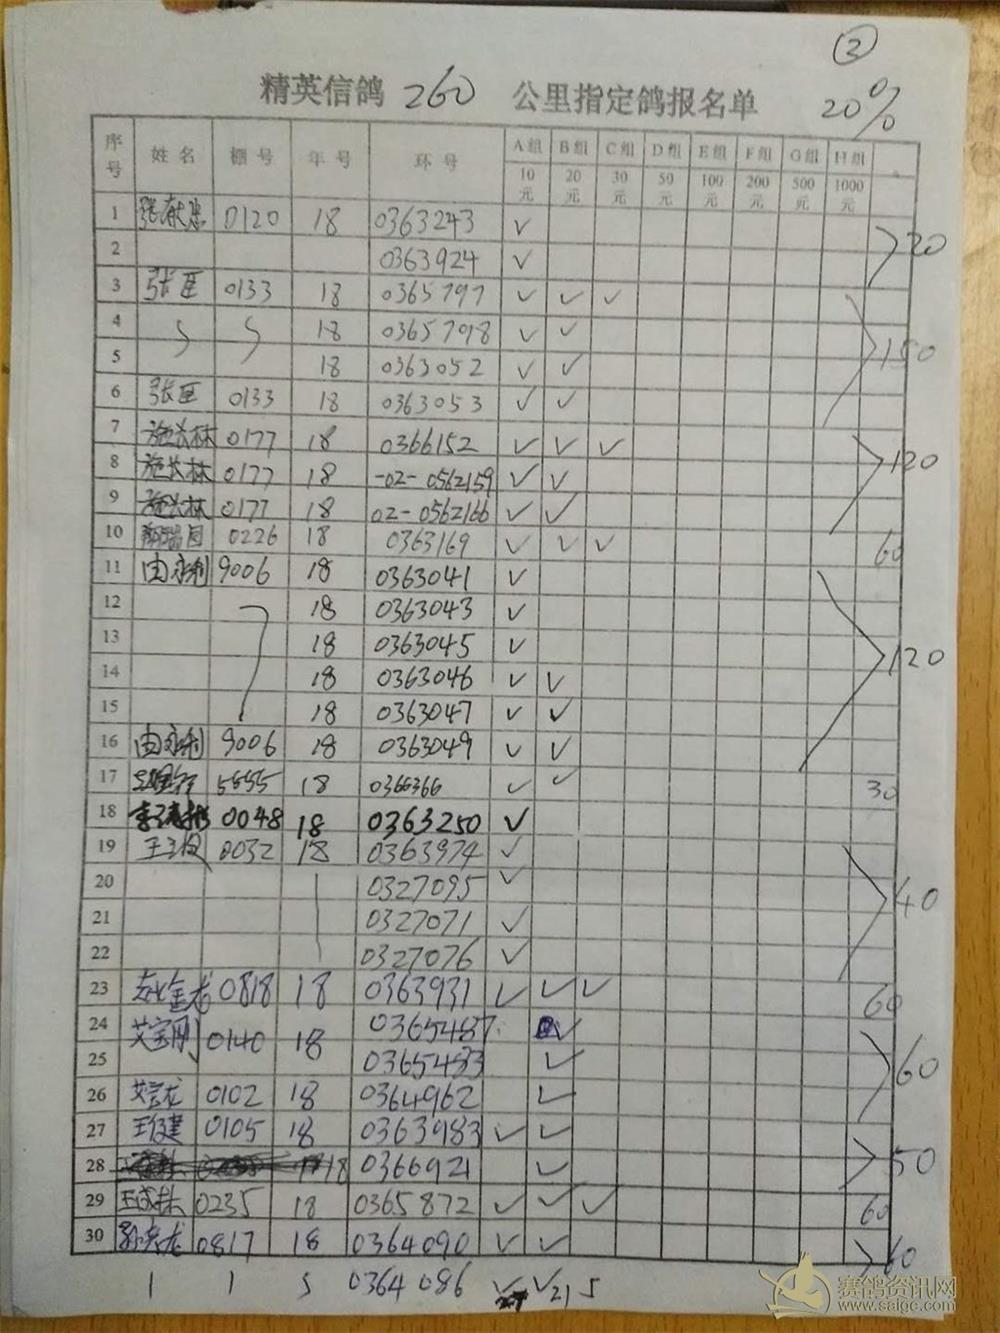 ③
精英信鸽 260 公里指定鸽报名单 20%
序号 姓名 棚号 年号 环号 A组 B组 C组 D组 E组 F组 G组 H组
10元 20元 30元 50元 100元 200元 500元 1000元
1 张献忠 0120 18 0363243 ✓
2 0363924 ✓ 20
3 张臣 0133 18 0365797 ✓ ✓ ✓
4 18 0365798 ✓ ✓
5 18 0363052 ✓ ✓ 150
6 张臣 0133 18 0363053 ✓ ✓
7 施长林 0177 18 0366152 ✓ ✓ ✓
8 施长林 0177 18 -02-0562159 ✓ ✓ 120
9 施长林 0177 18 02-0562166 ✓ ✓
10 0226 18 0363169 ✓ ✓ ✓ 60
11 由永利 9006 18 0363041 ✓
12 18 0363043 ✓
13 18 0363045 ✓
14 18 0363046 ✓ ✓ 120
15 18 0363047 ✓ ✓
16 由永利 9006 18 0363049 ✓ ✓
17 5555 18 0366366 ✓ ✓ 30
18 0048 18 0363250 ✓
19 0032 18 0363974 ✓
20 0327095 ✓
21 0327071 ✓ 40
22 0327076 ✓
23 赵金龙 0818 18 0363931 ✓ ✓ ✓ 60
24 艾宝刚 0140 18 0365487 ✓
25 0365483 ✓ 60
26 艾云龙 0102 18 0364962 ✓
27 王俊建 0105 18 0363983 ✓ ✓
28 18 0366921 ✓ 50
29 王成林 0235 18 0365872 ✓ ✓ ✓ 60
30 孙兴龙 0817 18 0364090 ✓ ✓ 60
0364086 ✓ ✓ 215
赛鸽资讯网
www.saigc.com